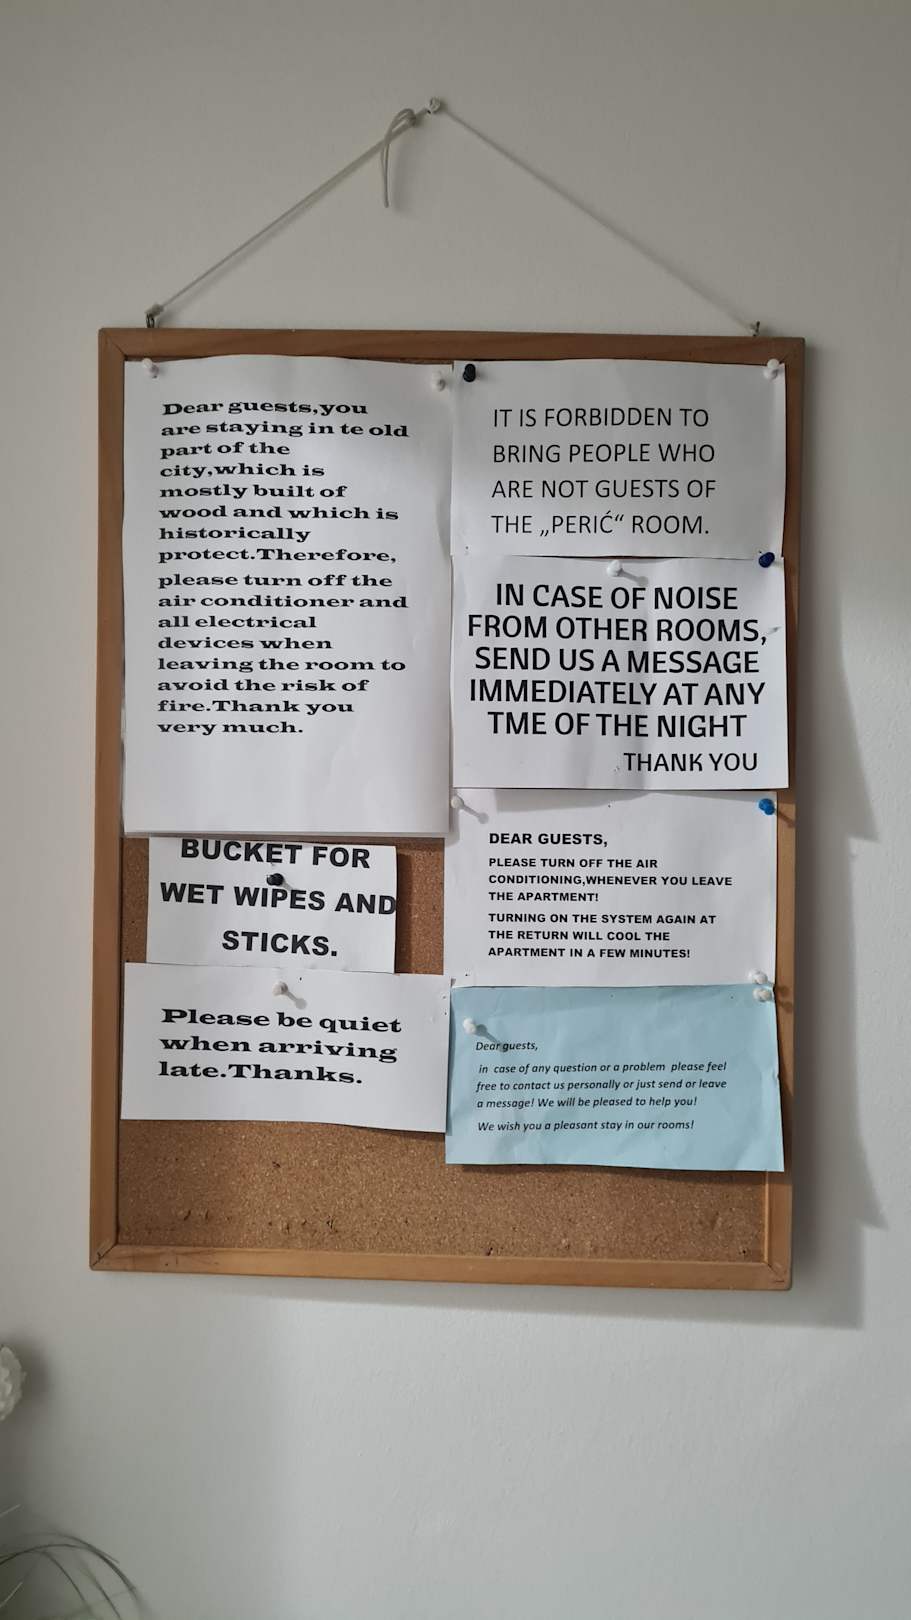 Dear guests,you
are staying in te old
part of the
city,which is
mostly built of
wood and which is
historically
protect.Therefore,
please turn off the
air conditioner and
all electrical
devices when
leaving the room to
avoid the risk of
fire.Thank you
very much.
BUCKET FOR
WET WIPES AND
STICKS.
Please be quiet
when arriving
late.Thanks.
IT IS FORBIDDEN TO
BRING PEOPLE WHO
ARE NOT GUESTS OF
THE „PERIĆ“ ROOM.
IN CASE OF NOISE
FROM OTHER ROOMS,
SEND US A MESSAGE
IMMEDIATELY AT ANY
TME OF THE NIGHT
THANK YOU
DEAR GUESTS,
PLEASE TURN OFF THE AIR
CONDITIONING,WHENEVER YOU LEAVE
THE APARTMENT!
TURNING ON THE SYSTEM AGAIN AT
THE RETURN WILL COOL THE
APARTMENT IN A FEW MINUTES!
Dear guests,
in case of any question or a problem please feel
free to contact us personally or just send or leave
a message! We will be pleased to help you!
We wish you a pleasant stay in our rooms!